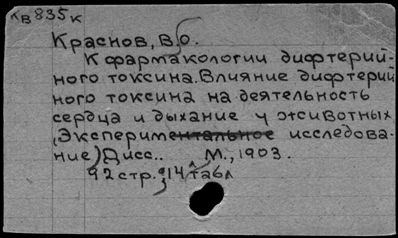 Кв835к
Краснов, В.б.
К фармакологии дифтерий-
ного токсина. Влияние дифтерий
ного токсина на деятельность
сердца и дыхание у животных
(Экспериментальное исследова-
ние) Дисс.. М., 1903.
92 стр.; 14 табл